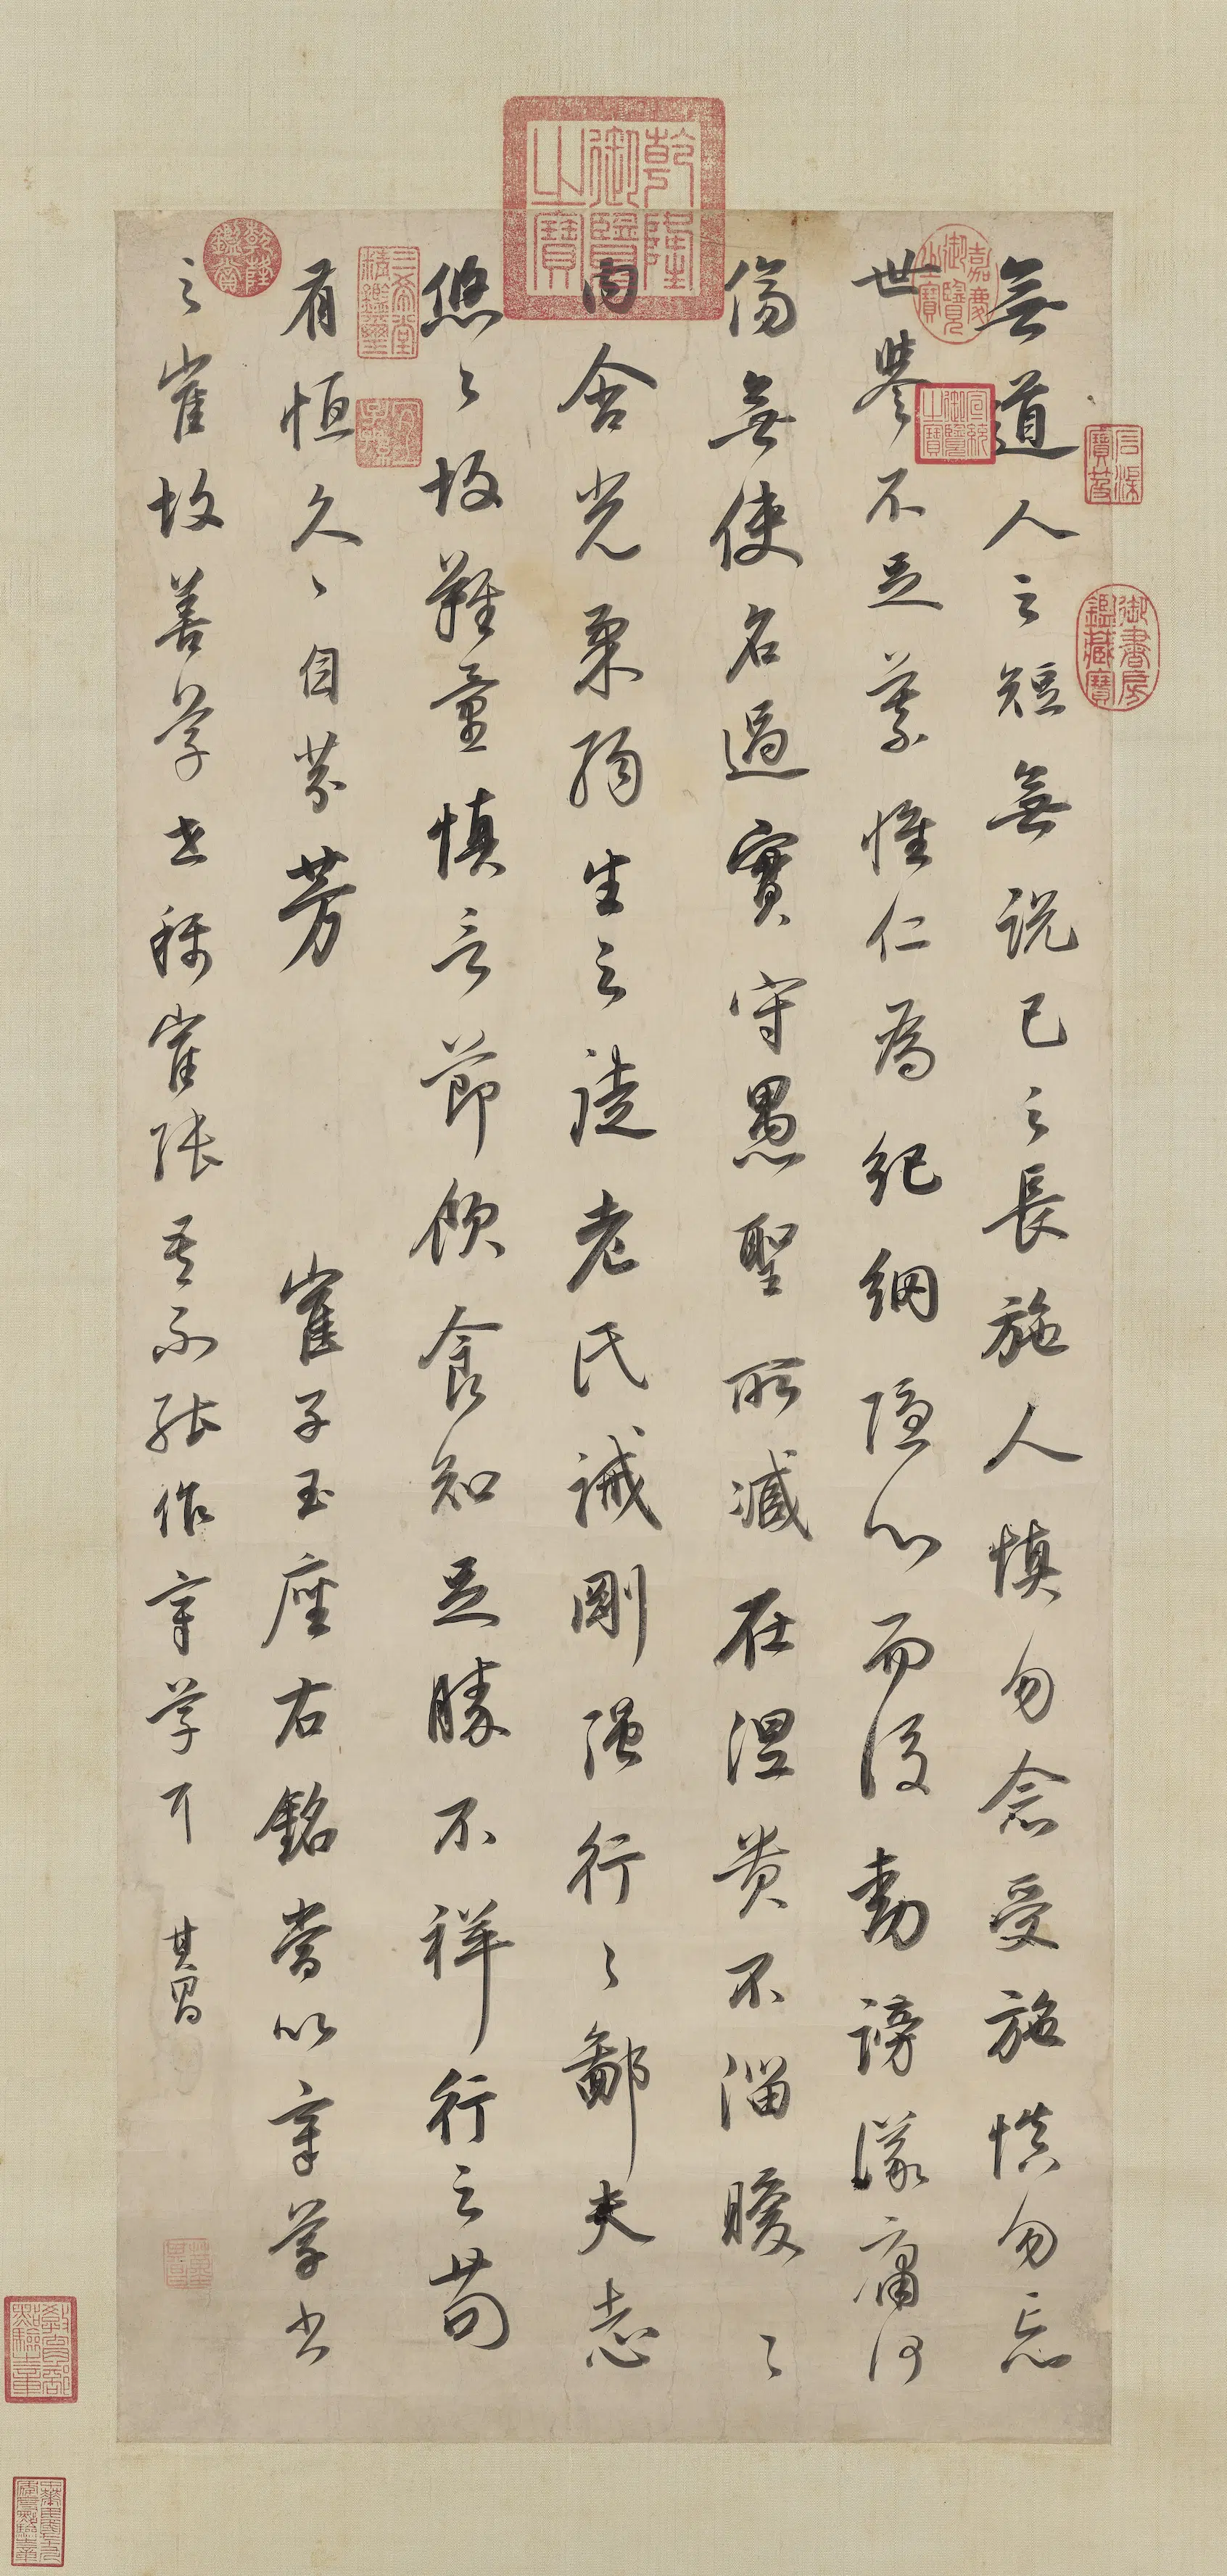 無道人之短無說己之長施人慎勿念受施慎勿忘
世譽不足慕惟仁為紀綱隱心而後動謗議庸何
傷無使名過實守愚聖所臧在涅貴不淄曖〻
內含光柔弱生之徒老氏誡剛强行〻鄙夫志
悠〻故難量慎言節飲食知足勝不祥行之苟
有恒久〻自芬芳
崔子玉座右銘嘗以章草書
之崔故善草世稱崔張吾不能作章草耳
其昌
乾隆御覽之寶
嘉慶御覽之寶
宣統御覽之寶
石渠寶笈
御書房鑑藏寶
乾隆鑑賞
三希堂精鑑璽
宜子孫
董其昌
教育部點驗之章